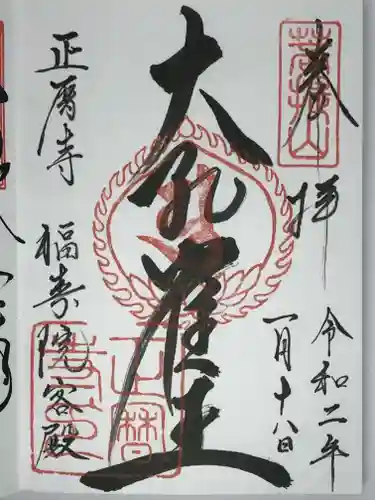 奉拝
令和二年
一月十八日
大孔雀王
正暦寺 福寿院客殿
菩提山